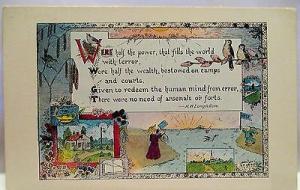 WERE half the power, that fills the world
with terror,
Were half the wealth, bestowed on camps
and courts,
Given to redeem the human mind from error,
There were no need of arsenals or forts.
H.W. Longfellow